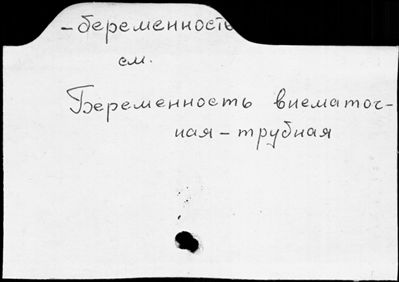 -беременность
см.
Беременность внематоч-
ная-трубная